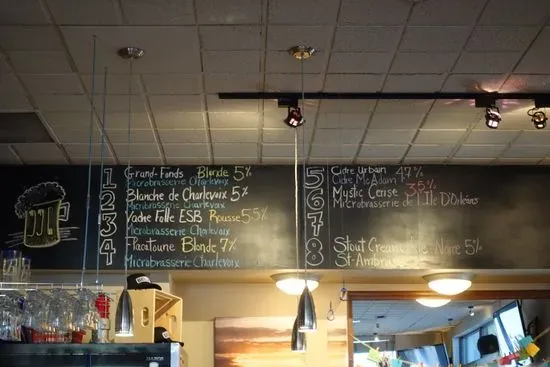 1 Grand-Fonds Blonde 5%
Microbrasserie Charlevoix
2 Blanche de Charlevoix 5%
Microbrasserie Charlevoix
3 Vache Folle ESB Rousse 5.5%
Microbrasserie Charlevoix
4 Flacatoune Blonde 7%
Microbrasserie Charlevoix
5 Cidre Urbain 4.7%
Cidre McAdam
6 Mystic Cerise
Microbrasserie de L'Ile D'Orléans
7
8 Stout Creame Noire 5%
St-Ambroise